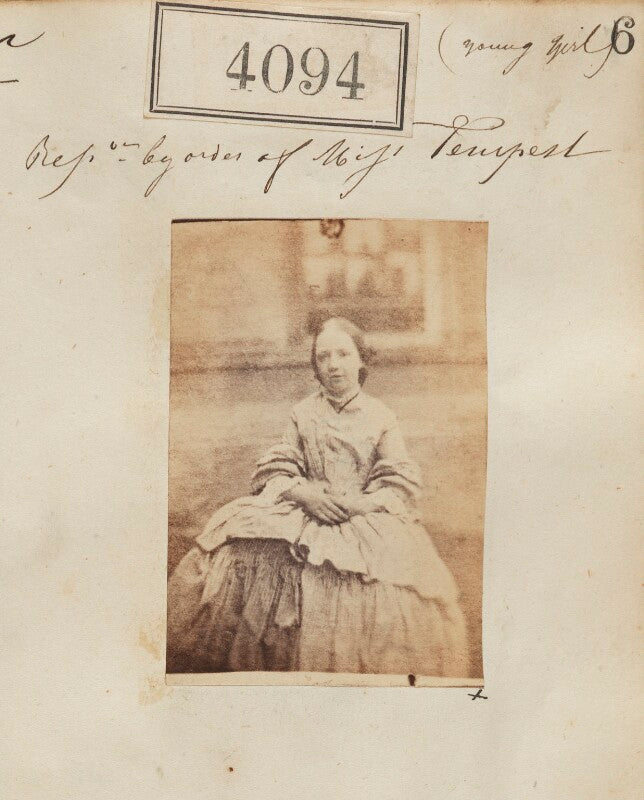 4094
(young girl) 6
Rep.on by order of Miss Tempest